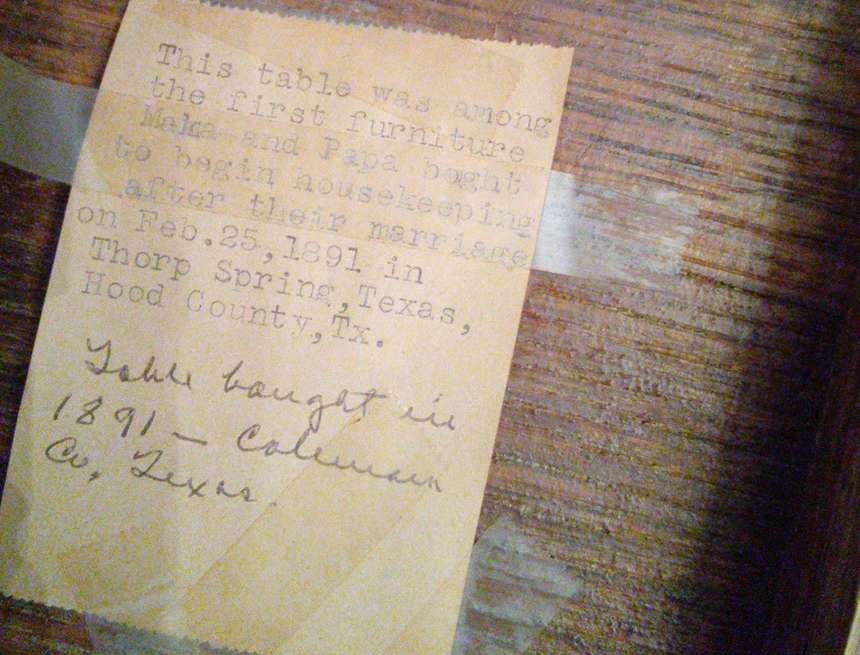 This table was among
the first furniture
Mama and Papa boght
to begin housekeeping
after their marriage
on Feb.25,1891 in
Thorp Spring,Texas,
Hood County,Tx.
Table bought in
1891 — Coleman
Co, Texas.